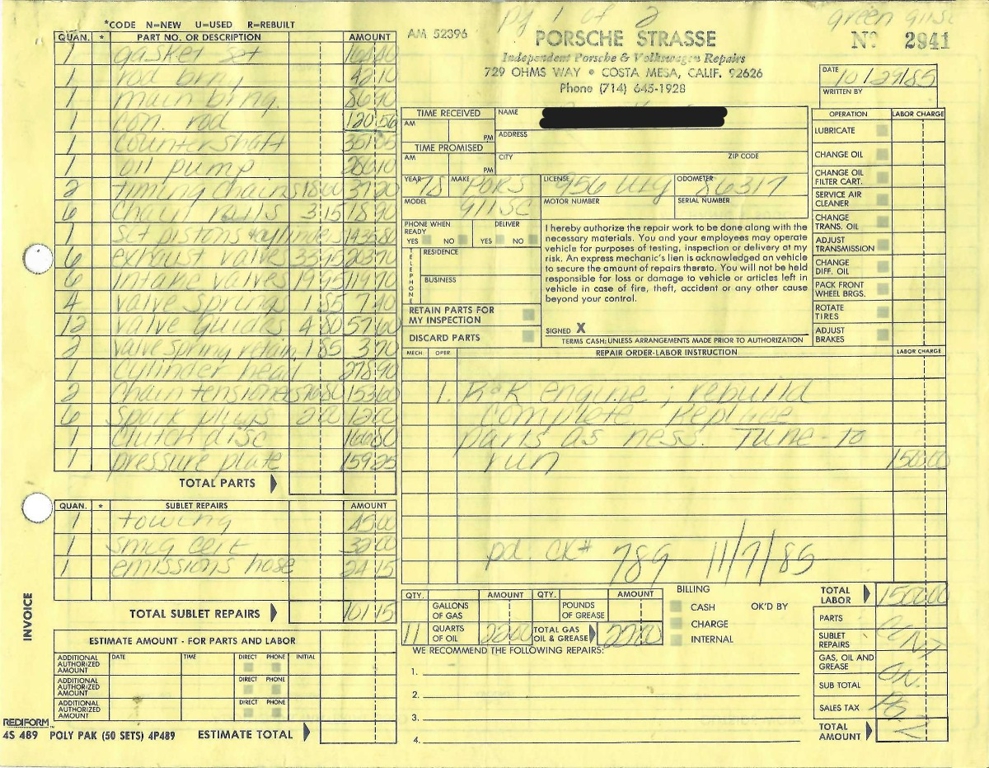 pg 1 of 2
green 911SC
*CODE N=NEW U=USED R=REBUILT
QUAN. * PART NO. OR DESCRIPTION AMOUNT
1 gasket set
1 rod brng 42 10
1 main brng. 86 90
1 con. rod 120.56
1 countershaft
1 oil pump
2 timing chains 18.60 37 20
6 chain rails 3.15 18 90
1 set pistons & cylinders
6 exhaust valves
6 intake valves
4 valve springs 1.85 7 40
12 valve guides 4.80 57 60
2 valve spring retain. 1.85 3 70
1 cylinder head 278 90
2 chain tensioners 76.80 153 60
6 spark plugs 2.00 12 00
1 clutch disc
1 pressure plate 159 25
TOTAL PARTS
QUAN. * SUBLET REPAIRS AMOUNT
1 towing 45 00
1 smog cert 32 00
1 emissions hose 24 15
TOTAL SUBLET REPAIRS 101 15
ESTIMATE AMOUNT - FOR PARTS AND LABOR
ADDITIONAL AUTHORIZED AMOUNT DATE TIME DIRECT PHONE INITIAL
ADDITIONAL AUTHORIZED AMOUNT DIRECT PHONE
ADDITIONAL AUTHORIZED AMOUNT DIRECT PHONE
INVOICE
REDIFORM
4S 489 POLY PAK (50 SETS) 4P489 ESTIMATE TOTAL
AM 52396
PORSCHE STRASSE
Independent Porsche & Volkswagen Repairs
729 OHMS WAY • COSTA MESA, CALIF. 92626
Phone (714) 645-1928
Nº 2941
DATE 10/29/85
WRITTEN BY
TIME RECEIVED
AM PM
TIME PROMISED
AM PM
NAME
ADDRESS
CITY ZIP CODE
YEAR 78 MAKE PORS LICENSE 956 UIG ODOMETER 86317
MODEL 911SC MOTOR NUMBER SERIAL NUMBER
PHONE WHEN READY DELIVER
YES NO YES NO
TELEPHONE
RESIDENCE
BUSINESS
RETAIN PARTS FOR MY INSPECTION
DISCARD PARTS
I hereby authorize the repair work to be done along with the
necessary materials. You and your employees may operate
vehicle for purposes of testing, inspection or delivery at my
risk. An express mechanic's lien is acknowledged on vehicle
to secure the amount of repairs thereto. You will not be held
responsible for loss or damage to vehicle or articles left in
vehicle in case of fire, theft, accident or any other cause
beyond your control.
SIGNED X
TERMS CASH: UNLESS ARRANGEMENTS MADE PRIOR TO AUTHORIZATION
OPERATION LABOR CHARGE
LUBRICATE
CHANGE OIL
CHANGE OIL FILTER CART.
SERVICE AIR CLEANER
CHANGE TRANS. OIL
ADJUST TRANSMISSION
CHANGE DIFF. OIL
PACK FRONT WHEEL BRGS.
ROTATE TIRES
ADJUST BRAKES
MECH. OPER. REPAIR ORDER-LABOR INSTRUCTION LABOR CHARGE
1. R&R engine; rebuild
complete. Replace
parts as ness. Tune-to
run 1500.00
pd. CK# 789 11/7/85
QTY. AMOUNT QTY. AMOUNT
GALLONS OF GAS POUNDS OF GREASE
11 QUARTS OF OIL 22.00 TOTAL GAS OIL & GREASE 22.00
BILLING
CASH
CHARGE
INTERNAL
OK'D BY
WE RECOMMEND THE FOLLOWING REPAIRS:
1.
2.
3.
4.
TOTAL LABOR 1500.00
PARTS
SUBLET REPAIRS
GAS, OIL AND GREASE
SUB TOTAL
SALES TAX
TOTAL AMOUNT
CONT
ON
PG. 2